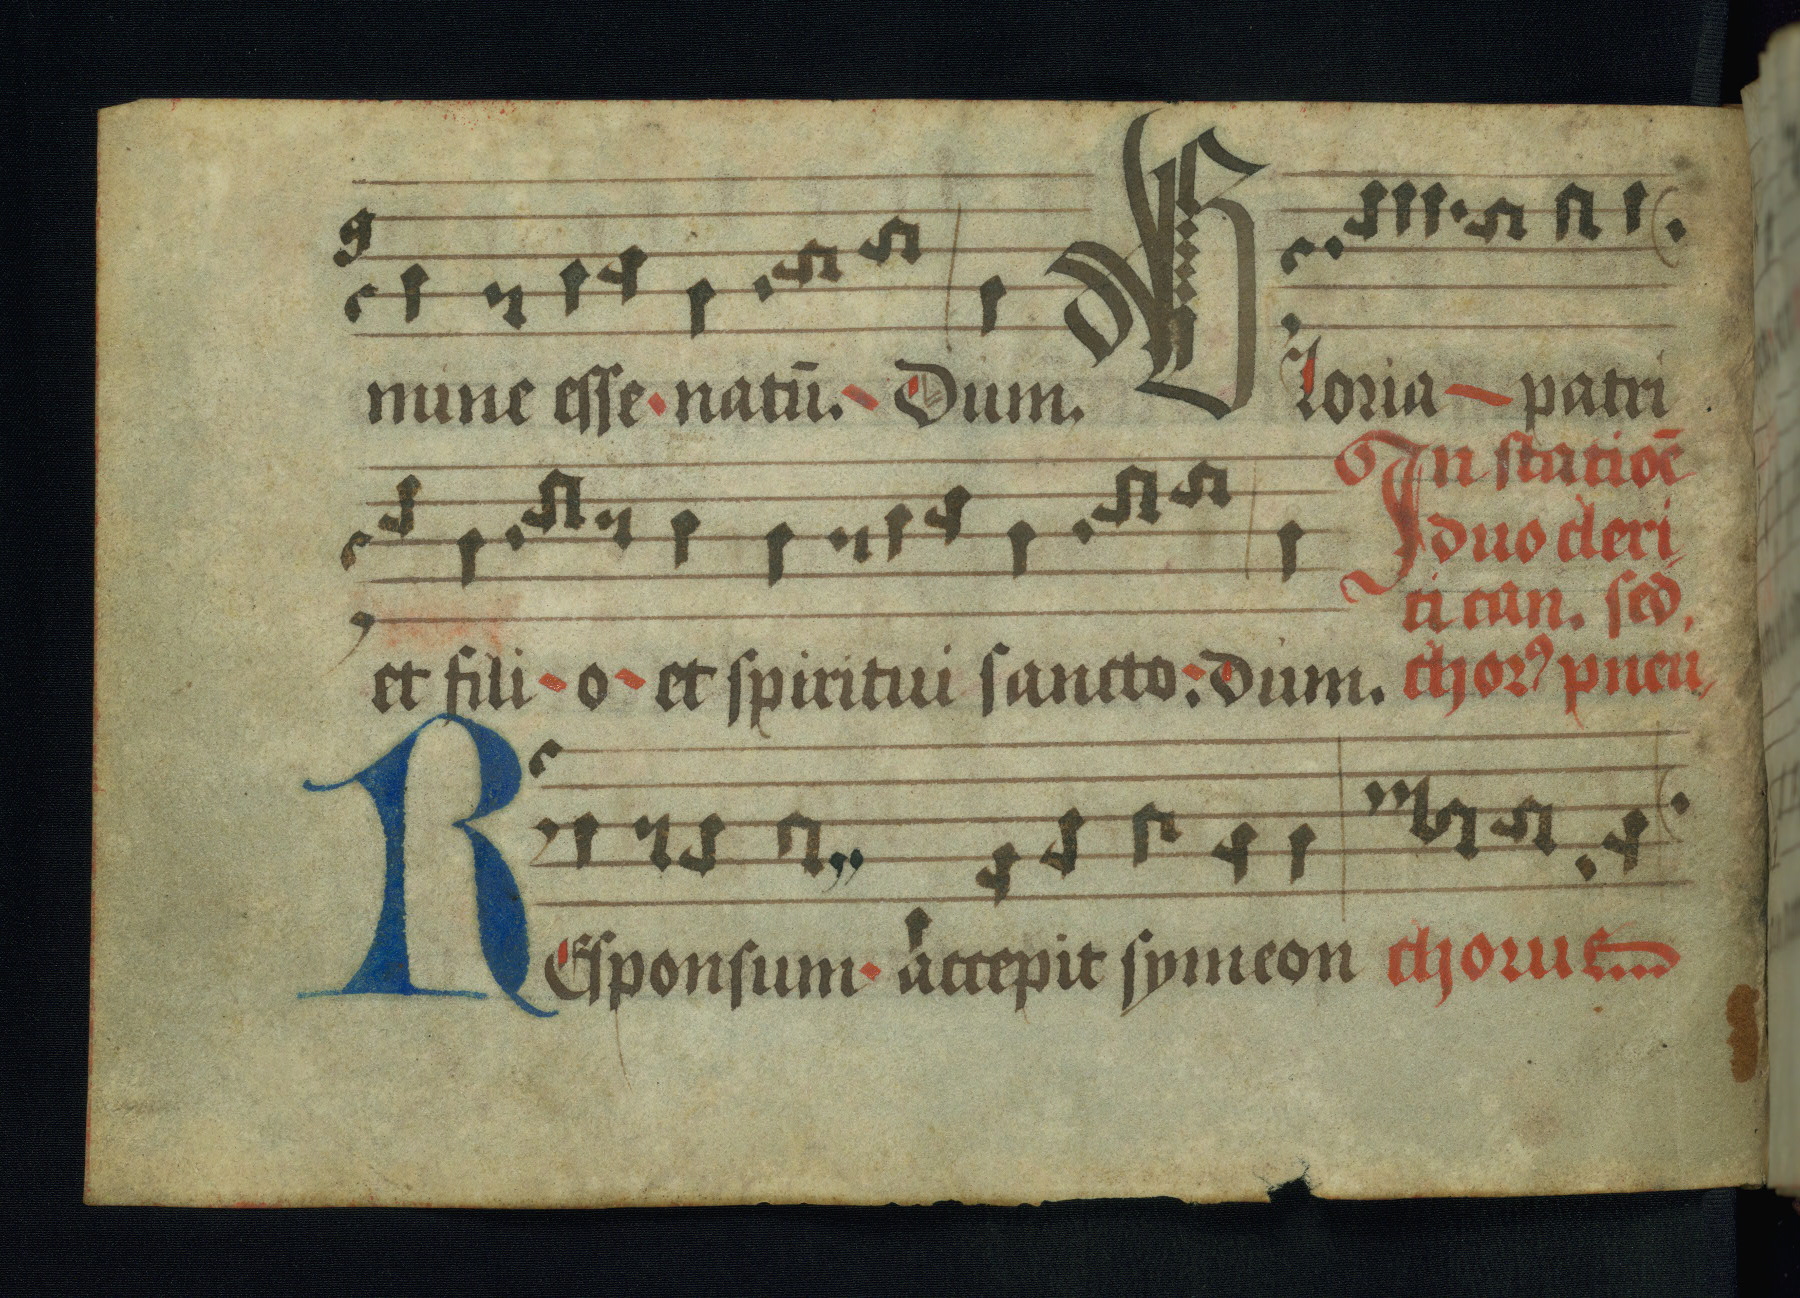 mine esse natū. Dum. Gloria patri
et filio et spiritui sancto: dum.
In statioē
duo cleri
ci can. sed.
chorꝰ pneu
Responsum accepit symeon chorus